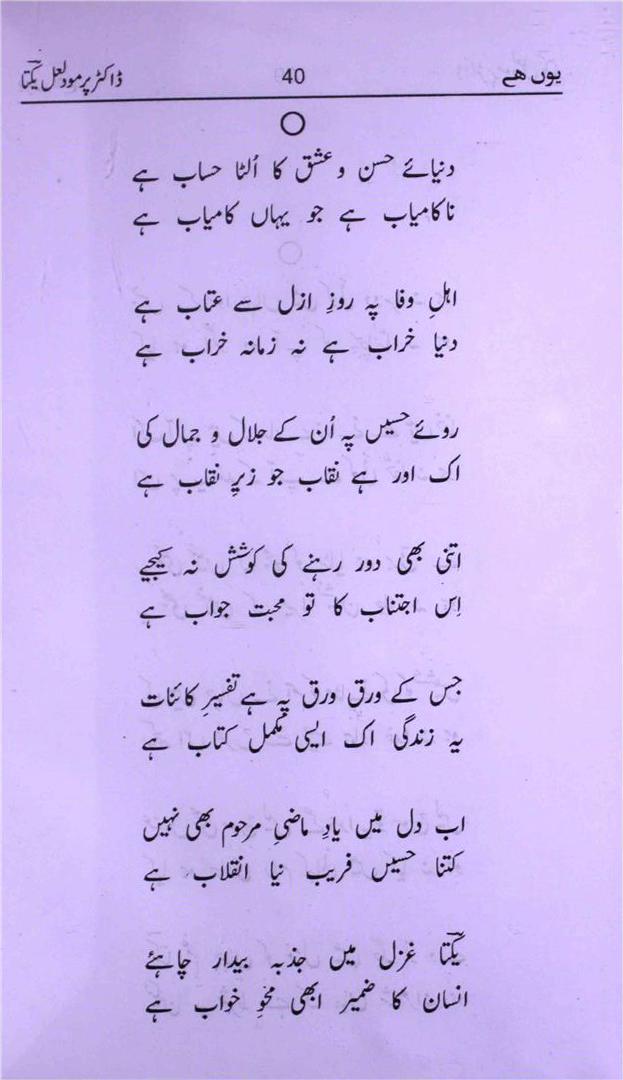 یوں ھے 40 ڈاکٹر پرمود لعل یکتا
دنیائے حسن و عشق کا اُلٹا حساب ہے
ناکامیاب ہے جو یہاں کامیاب ہے
اہلِ وفا پہ روزِ ازل سے عتاب ہے
دنیا خراب ہے نہ زمانہ خراب ہے
روئے حسیں پہ اُن کے جلال و جمال کی
اک اور ہے نقاب جو زیرِ نقاب ہے
اتنی بھی دور رہنے کی کوشش نہ کیجیے
اِس اجتناب کا تو محبت جواب ہے
جس کے ورق ورق پہ ہے تفسیرِ کائنات
یہ زندگی اک ایسی مکمل کتاب ہے
اب دل میں یادِ ماضیِ مرحوم بھی نہیں
کتنا حسیں فریب نیا انقلاب ہے
یکتا غزل میں جذبہ بیدار چاہئے
انسان کا ضمیر ابھی محوِ خواب ہے